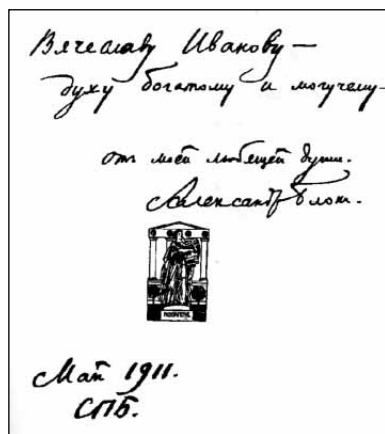 Вячеславу Иванову —
духу богатому и могучему —
отъ моей любящей души.
Александр Блок.
Май 1911.
СПБ.